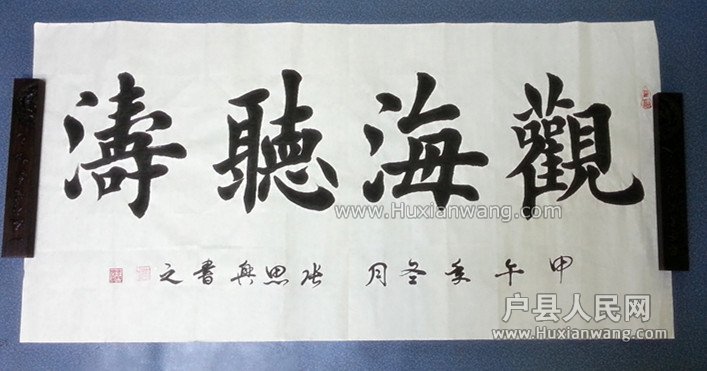 觀海聽濤
甲午季冬月 張思興書之
www.Huxianwang.com
户县人民网
www.Huxianwang.com